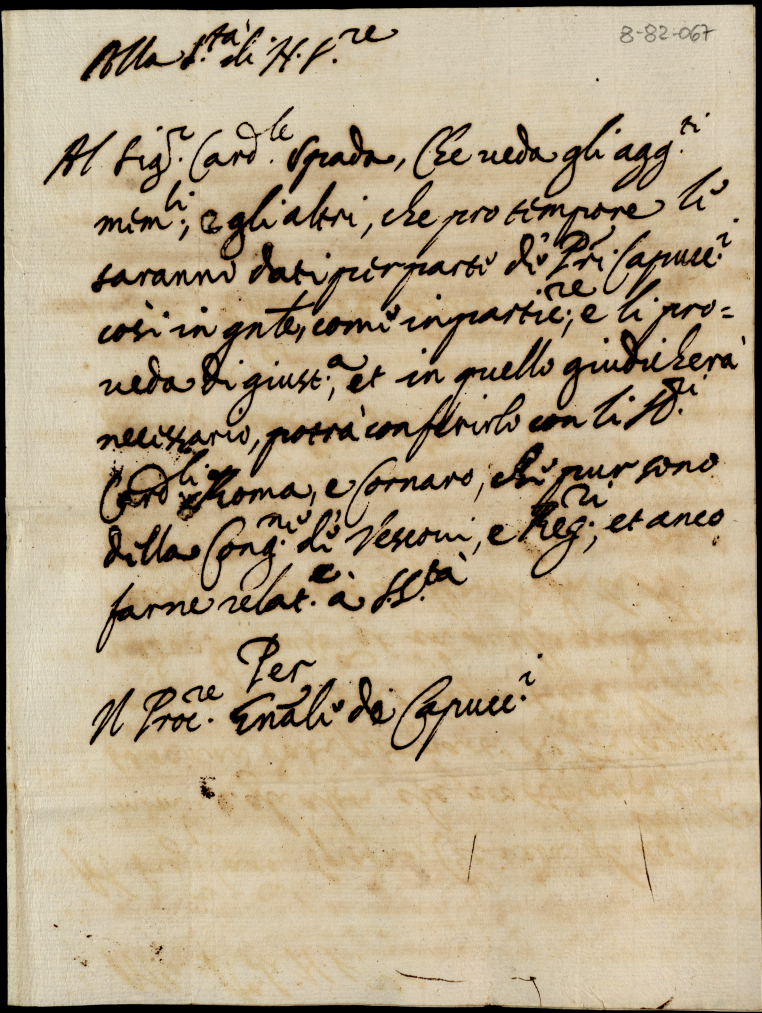 8-82-067
Alla S.tà di N. S.re
Al Sig.r Card.le Spada, Che veda gli agg.ti
mem.li, e gli altri, che pro tempore li
saranno dati per parte de Pri. Capucc.i
così in gnle, come in partic.re; e li pro=
veda di giust.a, et in quello giudicherà
necessario, potrà conferirlo con li SS.ri
Card.li Roma, e Cornaro, che pur sono
della Cong.ne de Vescovi, e Reg.ri, et anco
farne relat.e à S. S.tà
Per
Il Proc.re Gnale de Capucc.i